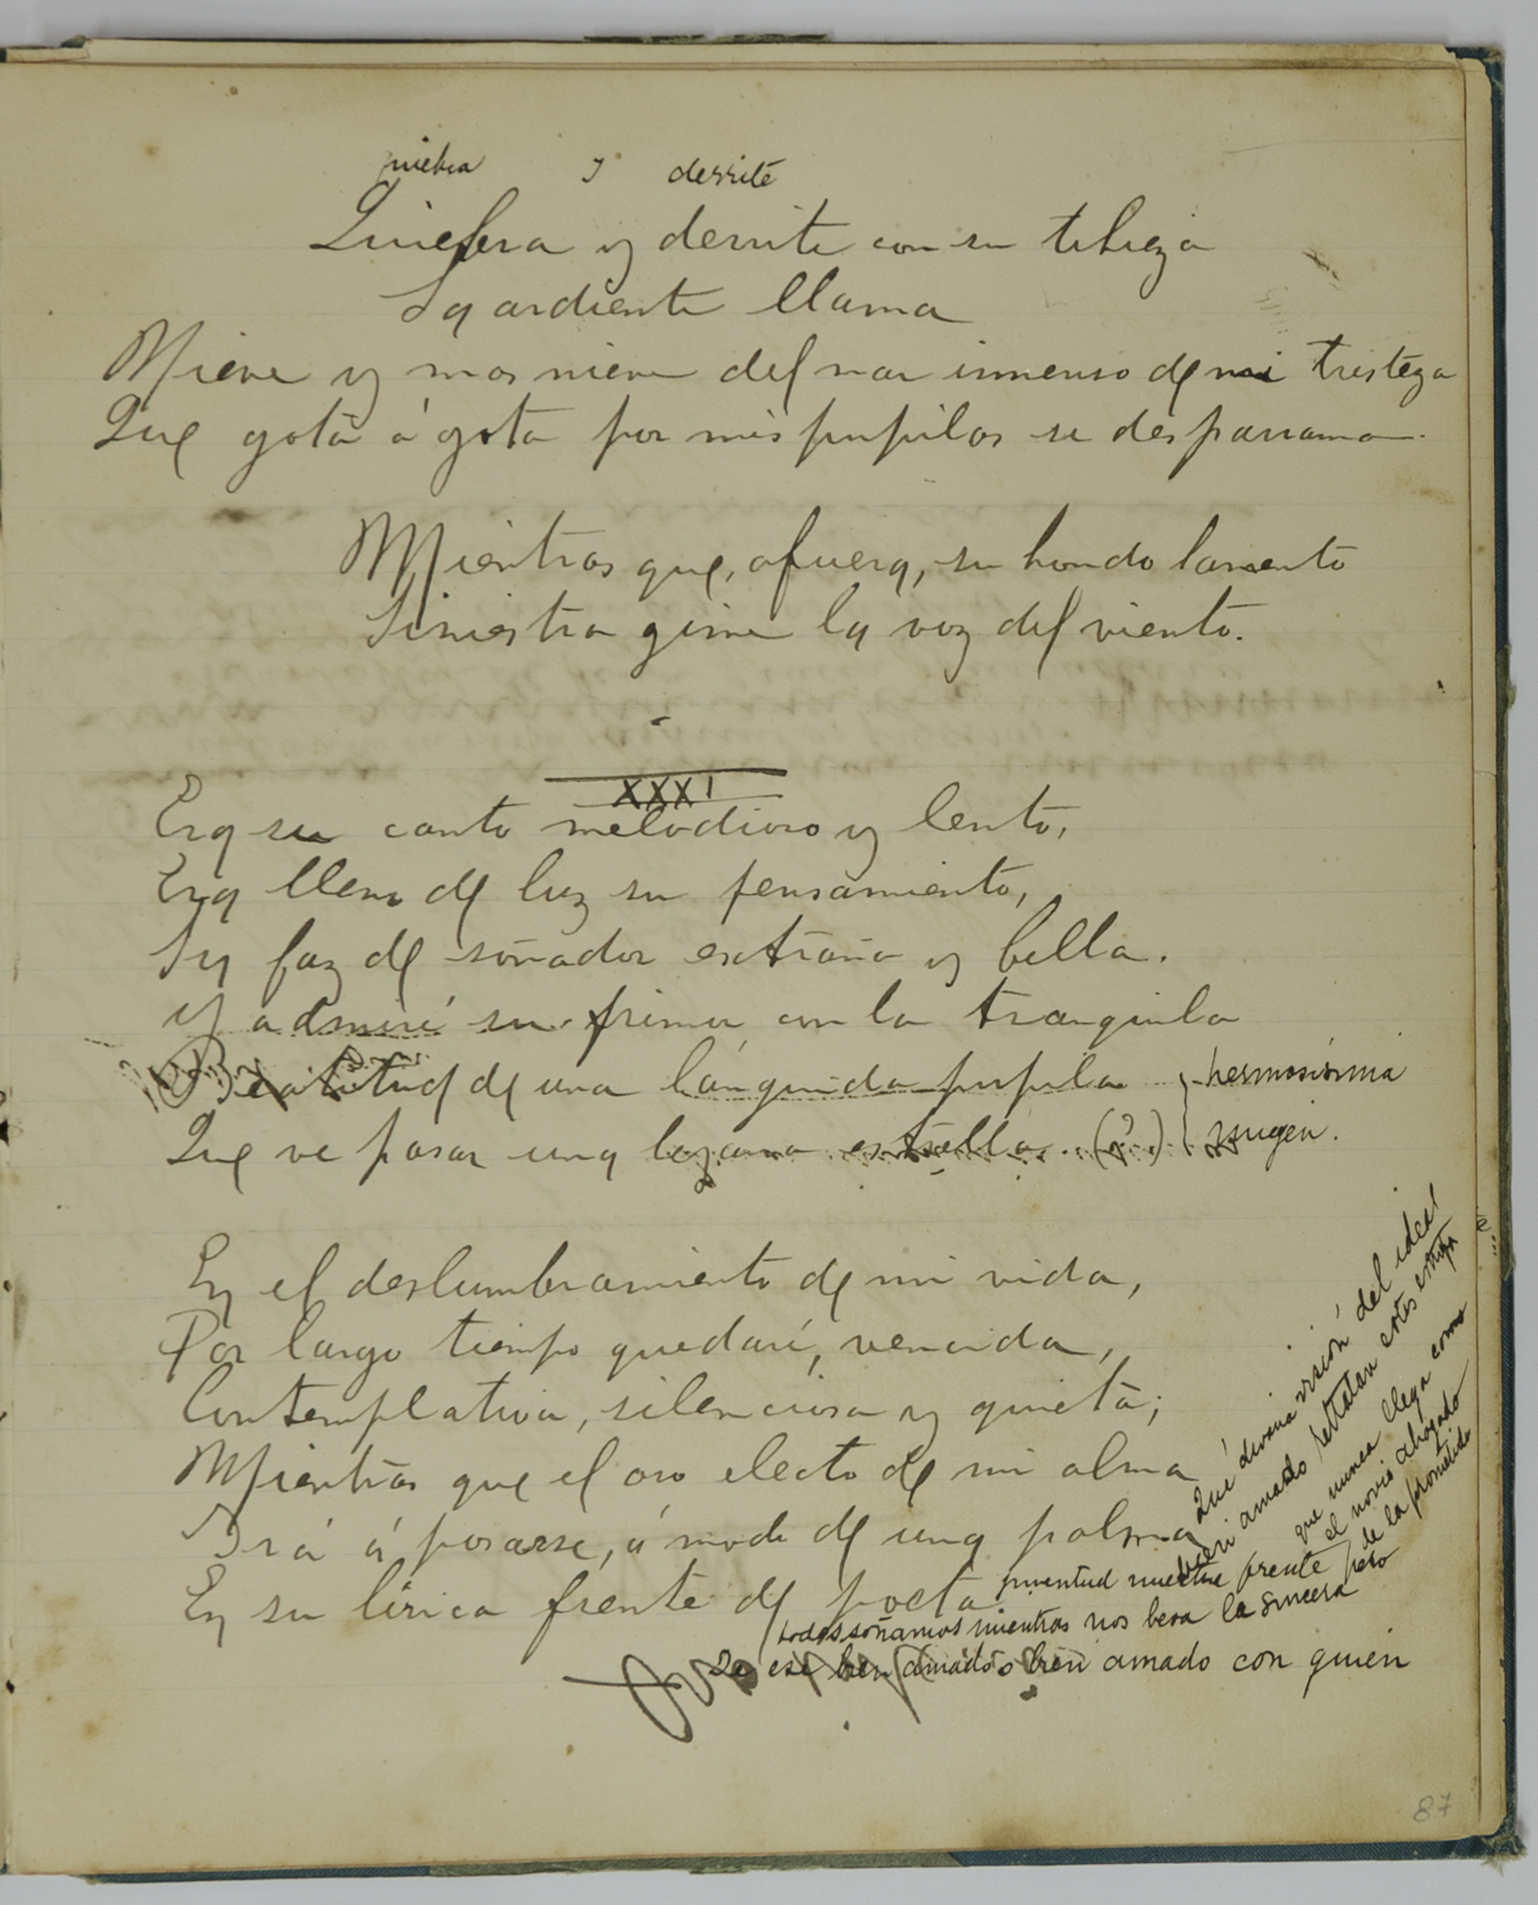 quiebra y derrite
Quiebra y derrite con su tibieza
Su ardiente llama
Nieve y mas nieve del mar inmenso de mi tristeza
Que gota á gota por mis pupilas se desparrama.
Mientras que, afuera, su hondo lamento
Siniestra gime la voz del viento.
XXXI
Era su canto melodioso y lento,
Era lleno de luz su pensamiento,
Su faz de soñador extraña y bella.
Y admiré su primor con la tranquila
Beatitud de una lánguida pupila hermosísima
Que ve pasar una lozana estrella. (?.) imagen.
En el deslumbramiento de mi vida,
Por largo tiempo quedaré, vencida,
Contemplativa, silenciosa y quieta;
Mientras que el oro electo de mi alma
Irá á posarse, á modo de una palma
En su lírica frente de poeta.
Qué divina visión del ideal
bien amado retratan estas estrofa
de ese bien amado o bien amado con quien
todas soñamos mientras nos besa la sincera
juventud nuestra frente pero
que nunca llega como
el novio ahogado
de la prometida
87